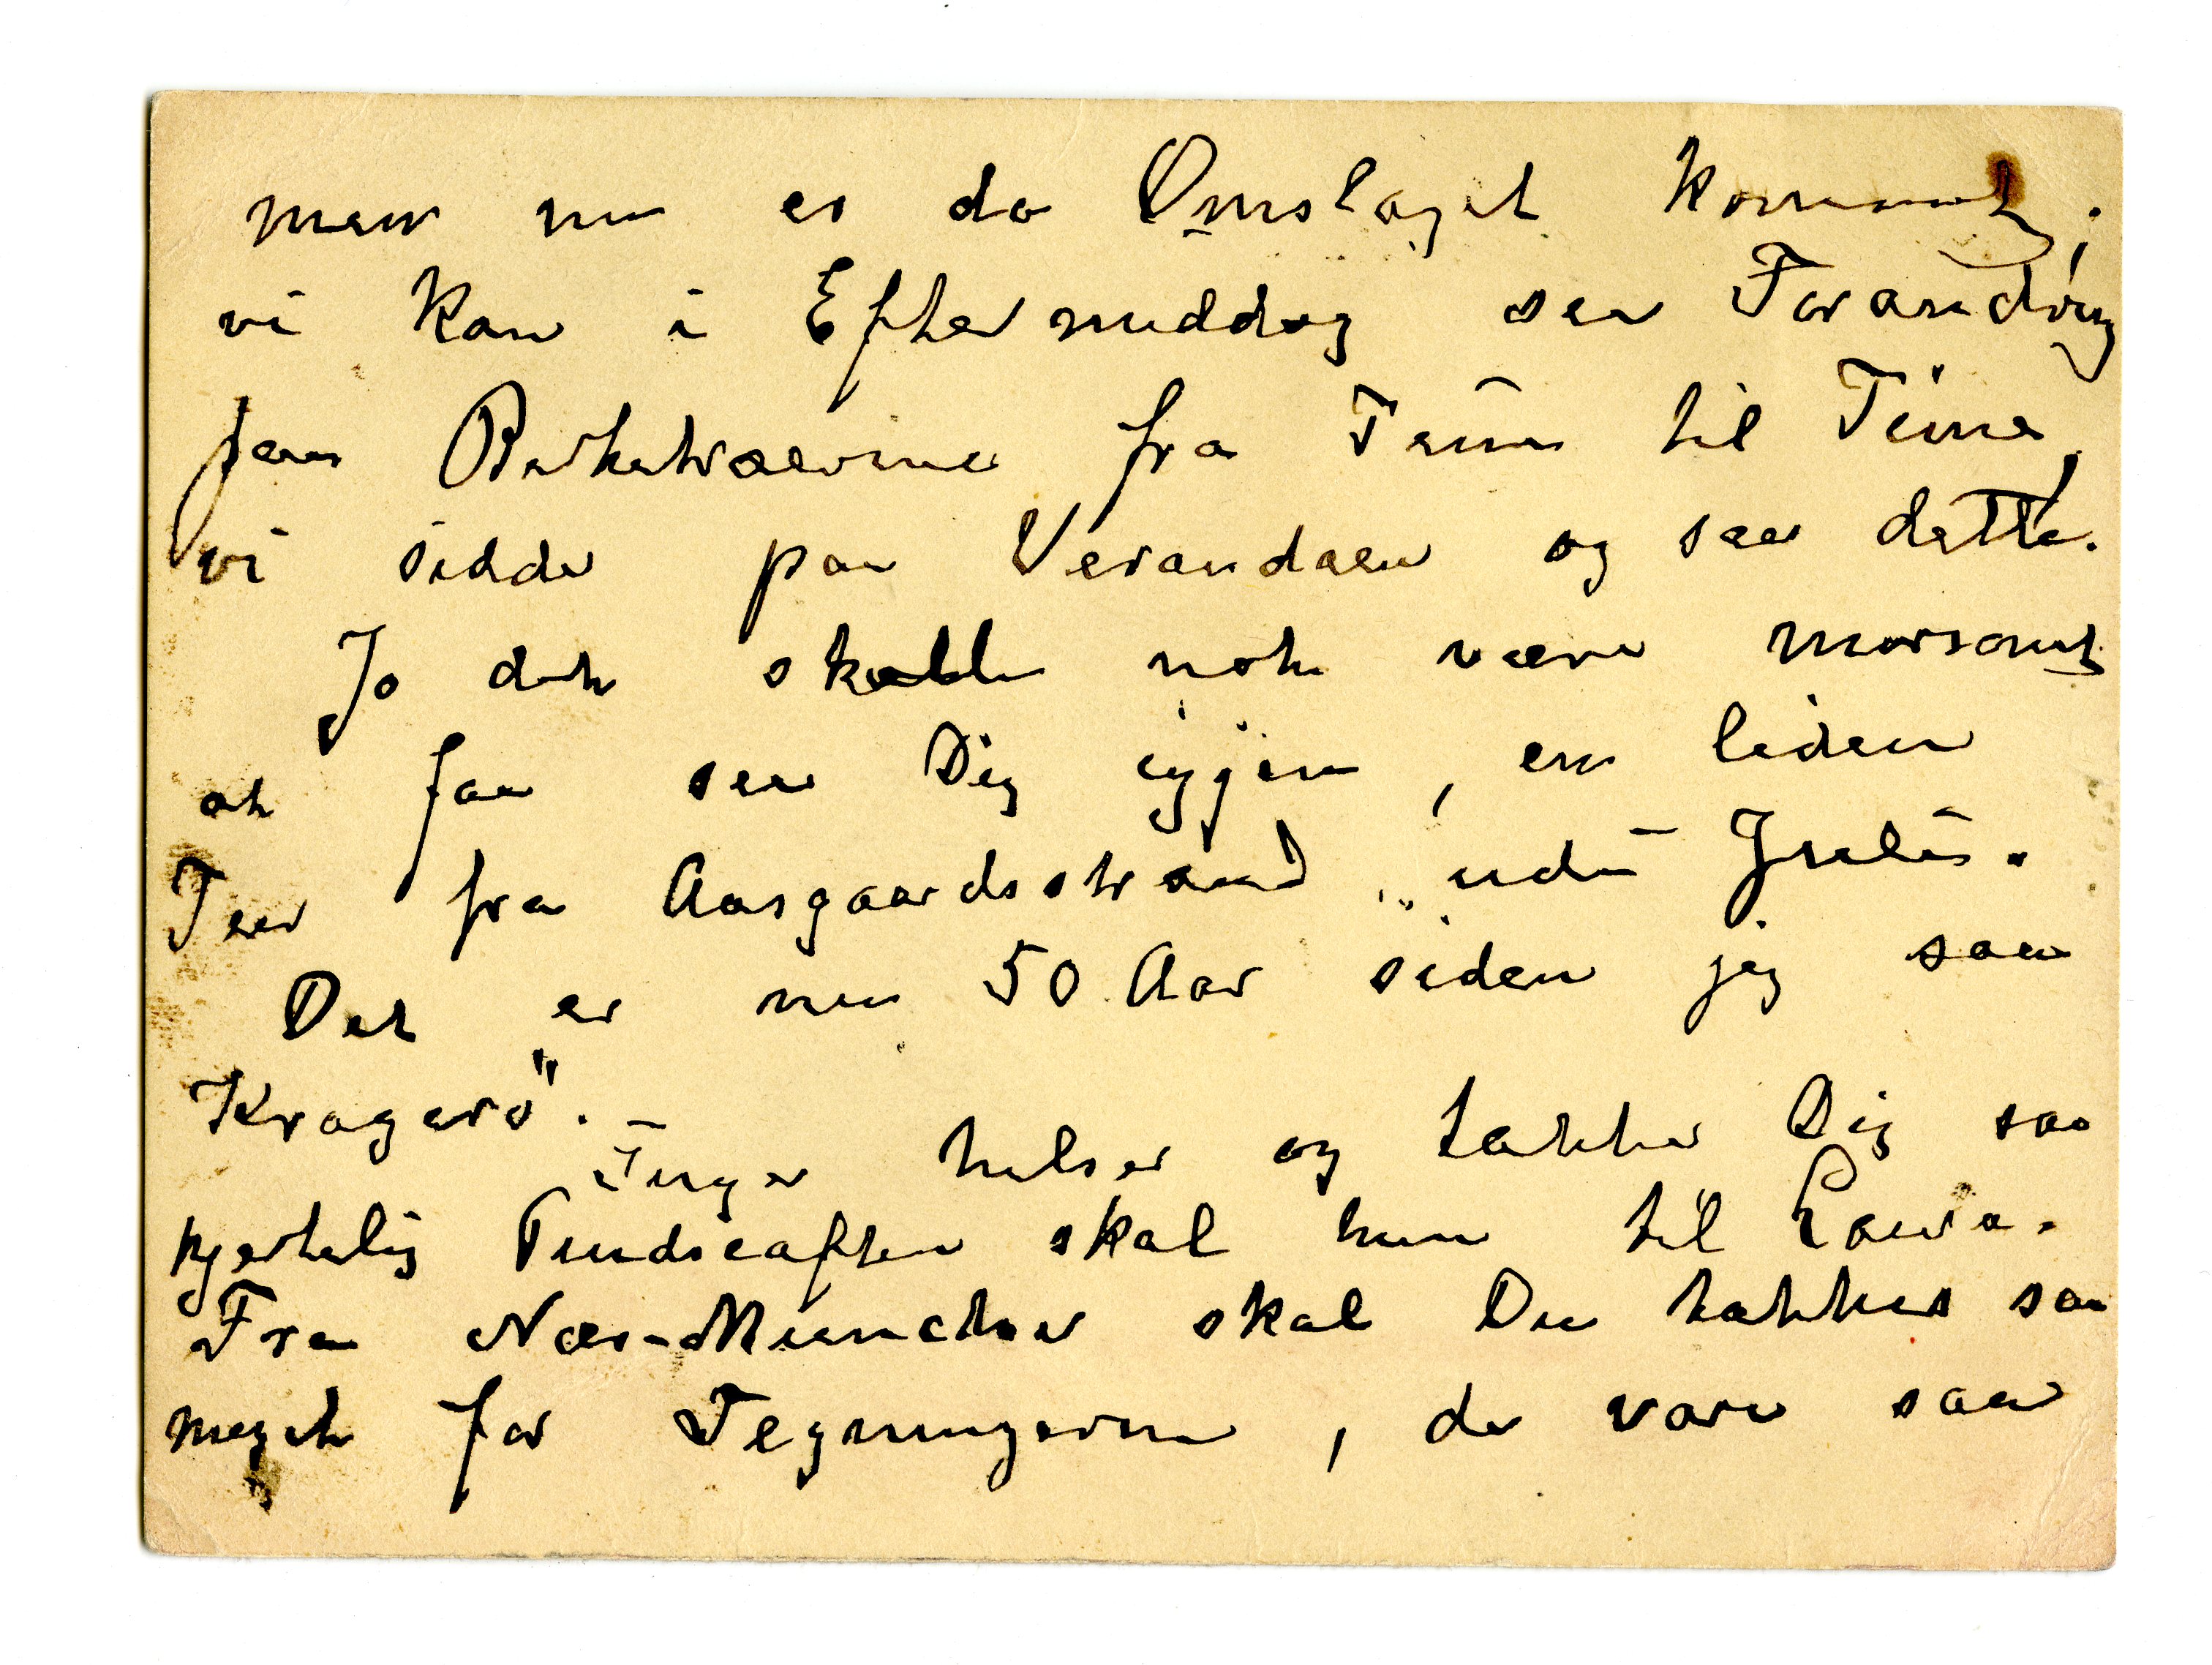 men nu er da Omslaget kommet,
vi kan i Eftermiddag see Forandring
paa Birketræerne fra Time til Time,
vi sidder paa Verandaen og seer dette.
Jo det skulde nok være morsomt
at faa see Dig igjen, en liden
Tour fra Aasgaardsstrand, „udi Juli".
Det er nu 50 Aar siden jeg saae
Kragerö". Inger hilser og takker Dig saa
hjertelig Pindseaften skal hun til Laura.
Fra Næs-Muncher skal Du takkes saa
meget for Tegningerne, de vare saa